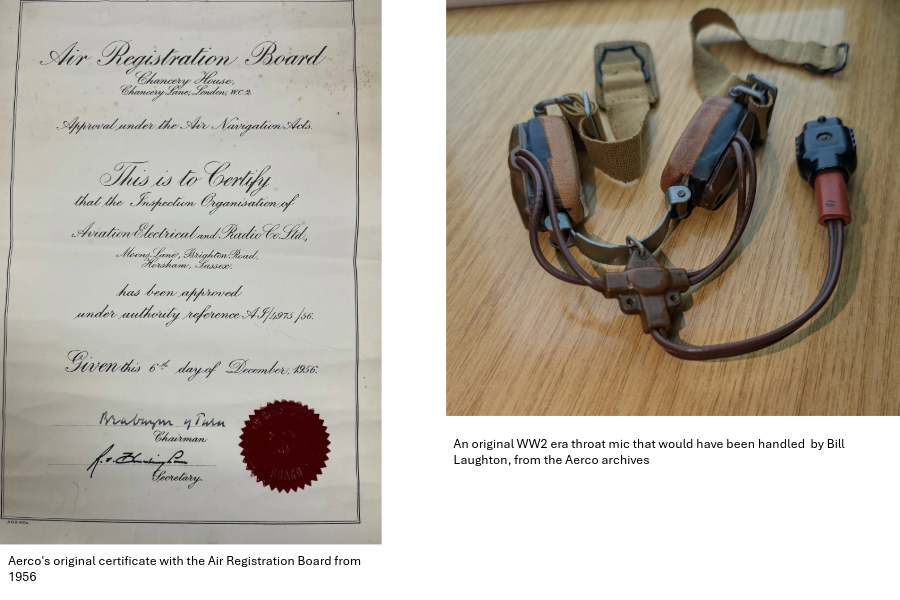 Air Registration Board
Chancery House,
Chancery Lane, London, W.C.2.
Approval under the Air Navigation Acts.
This is to Certify
that the Inspection Organisation of
Aviation Electrical and Radio Co. Ltd.,
Moons Lane, Brighton Road,
Horsham, Sussex.
has been approved
under authority reference AI/4975/56.
Given this 6th day of December, 1956.
Brabazon of Tara
Chairman
Secretary.
BOARD
Aerco's original certificate with the Air Registration Board from
1956
An original WW2 era throat mic that would have been handled by Bill
Laughton, from the Aerco archives